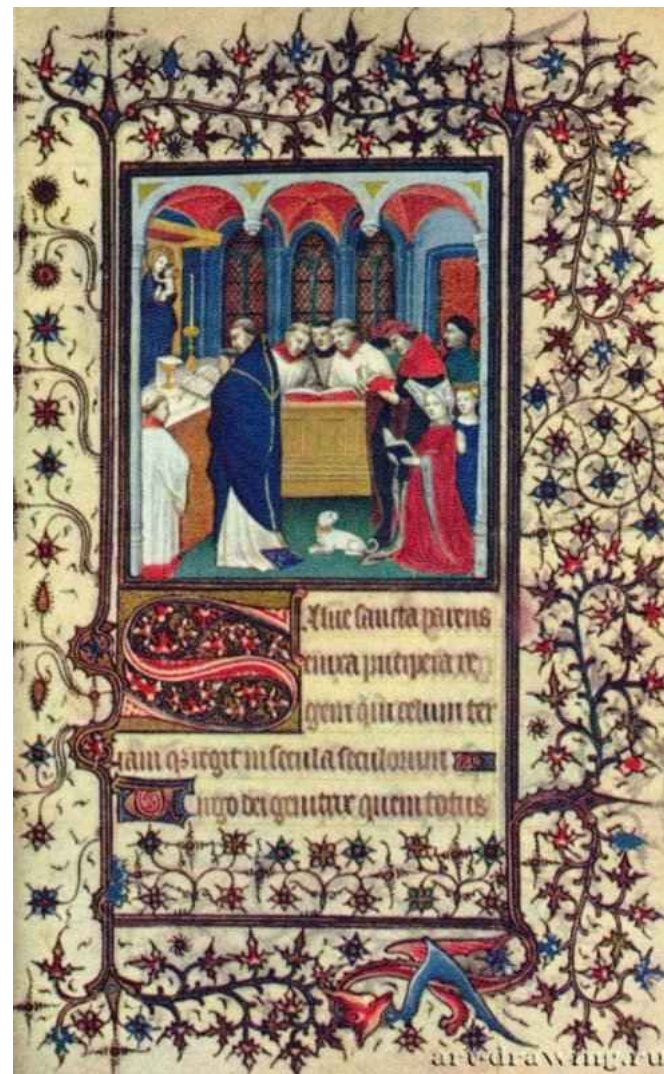 Salue sancta parens
enixa puerpera re
gem qui celum ter
ram qz regit in secula seculorum
Uirgo dei genitrix quem totus
art-drawing.ru